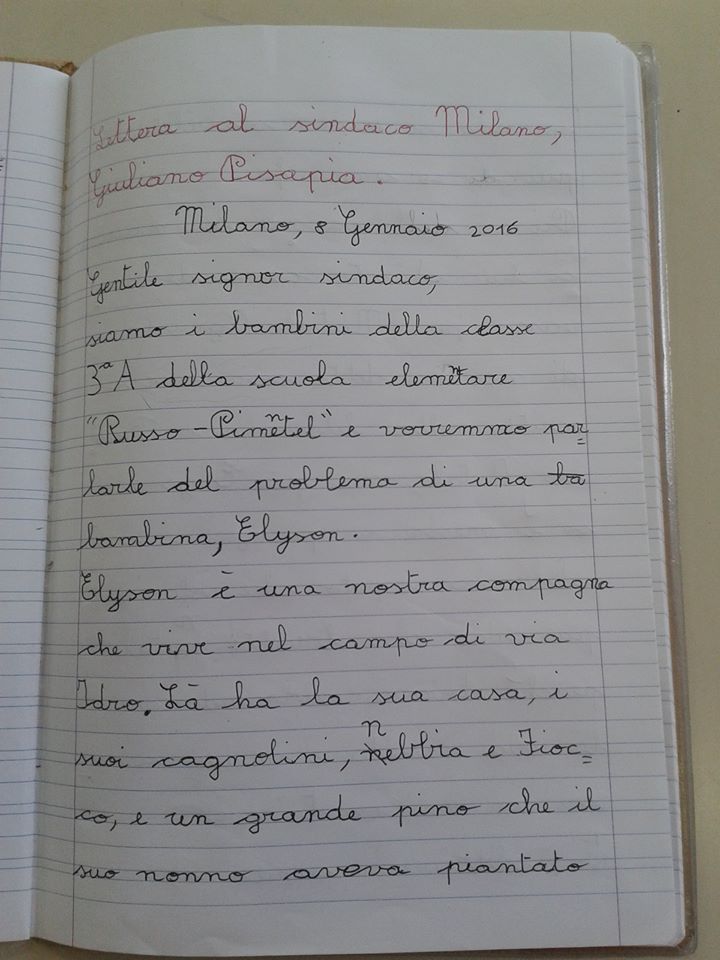 Lettera al sindaco Milano,
Giuliano Pisapia.
Milano, 8 Gennaio 2016
Gentile signor sindaco,
siamo i bambini della classe
3ª A della scuola elementare
"Russo-Pimentel" e vorremmo par=
larle del problema di una ba
bambina, Elyson.
Elyson è una nostra compagna
che vive nel campo di via
Idro. Là ha la sua casa, i
suoi cagnolini, nebbia e Fioc=
co, e un grande pino che il
suo nonno aveva piantato